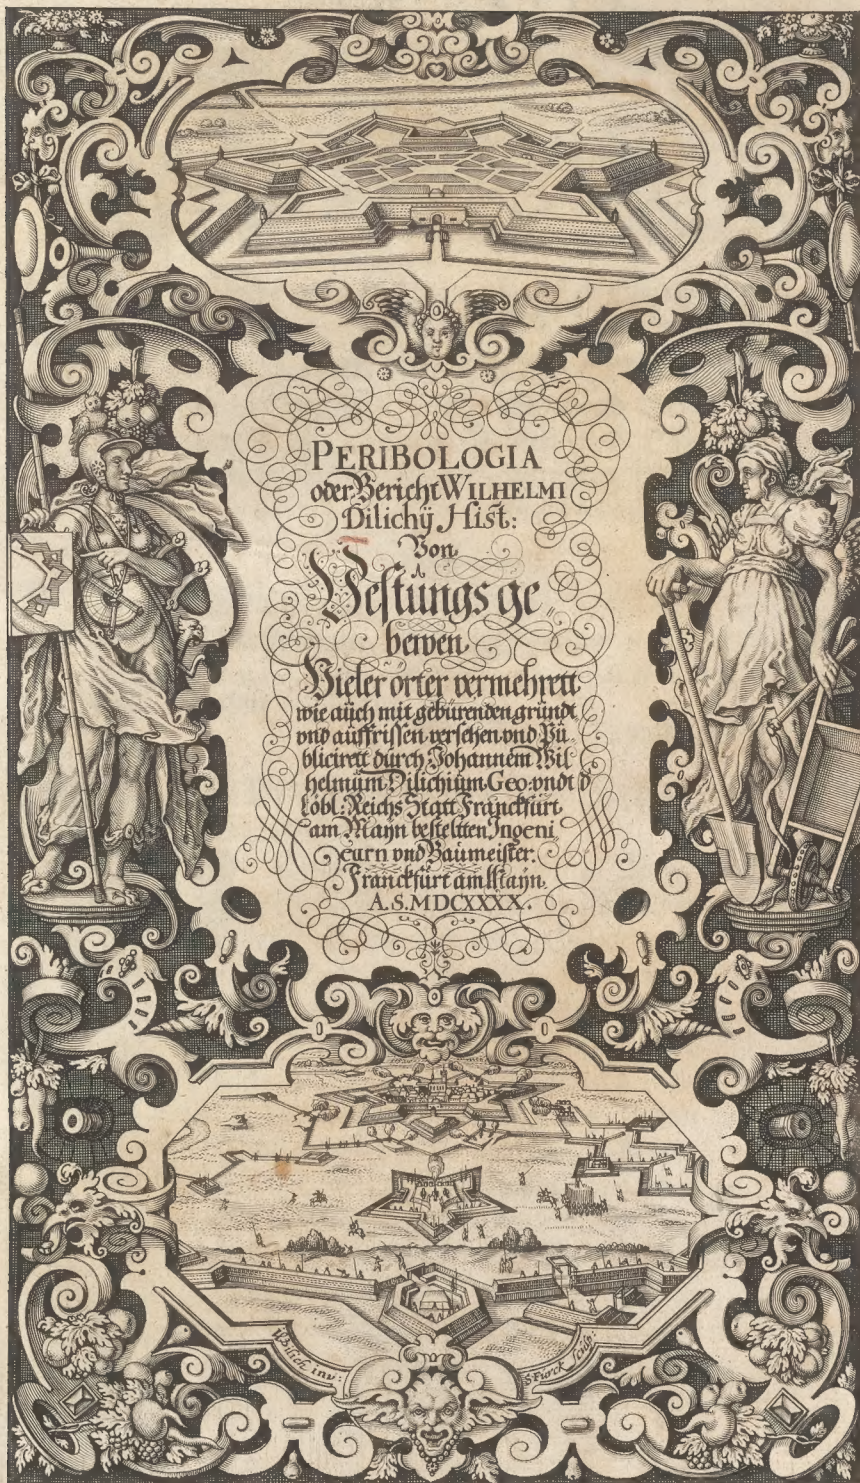 PERIBOLOGIA
oder Bericht WILHELMI
Dilichÿ Hist:
Von
Vestungs ge
bewen
Vieler örter vermehrett
wie aüch mit gebürenden gründt
vnd aüffrissen versehen vnd Pü
blicirett dürch Johannem Wil
helmüm Dilichiüm Geo: vndt d
löbl: Reichs Statt Franckfürt
am Maÿn bestellten Ingeni
eürn vnd Baümeister.
Franckfürt am Maÿn.
A.S. MDCXXXX.
WDilich inv:
S Furck sculp: